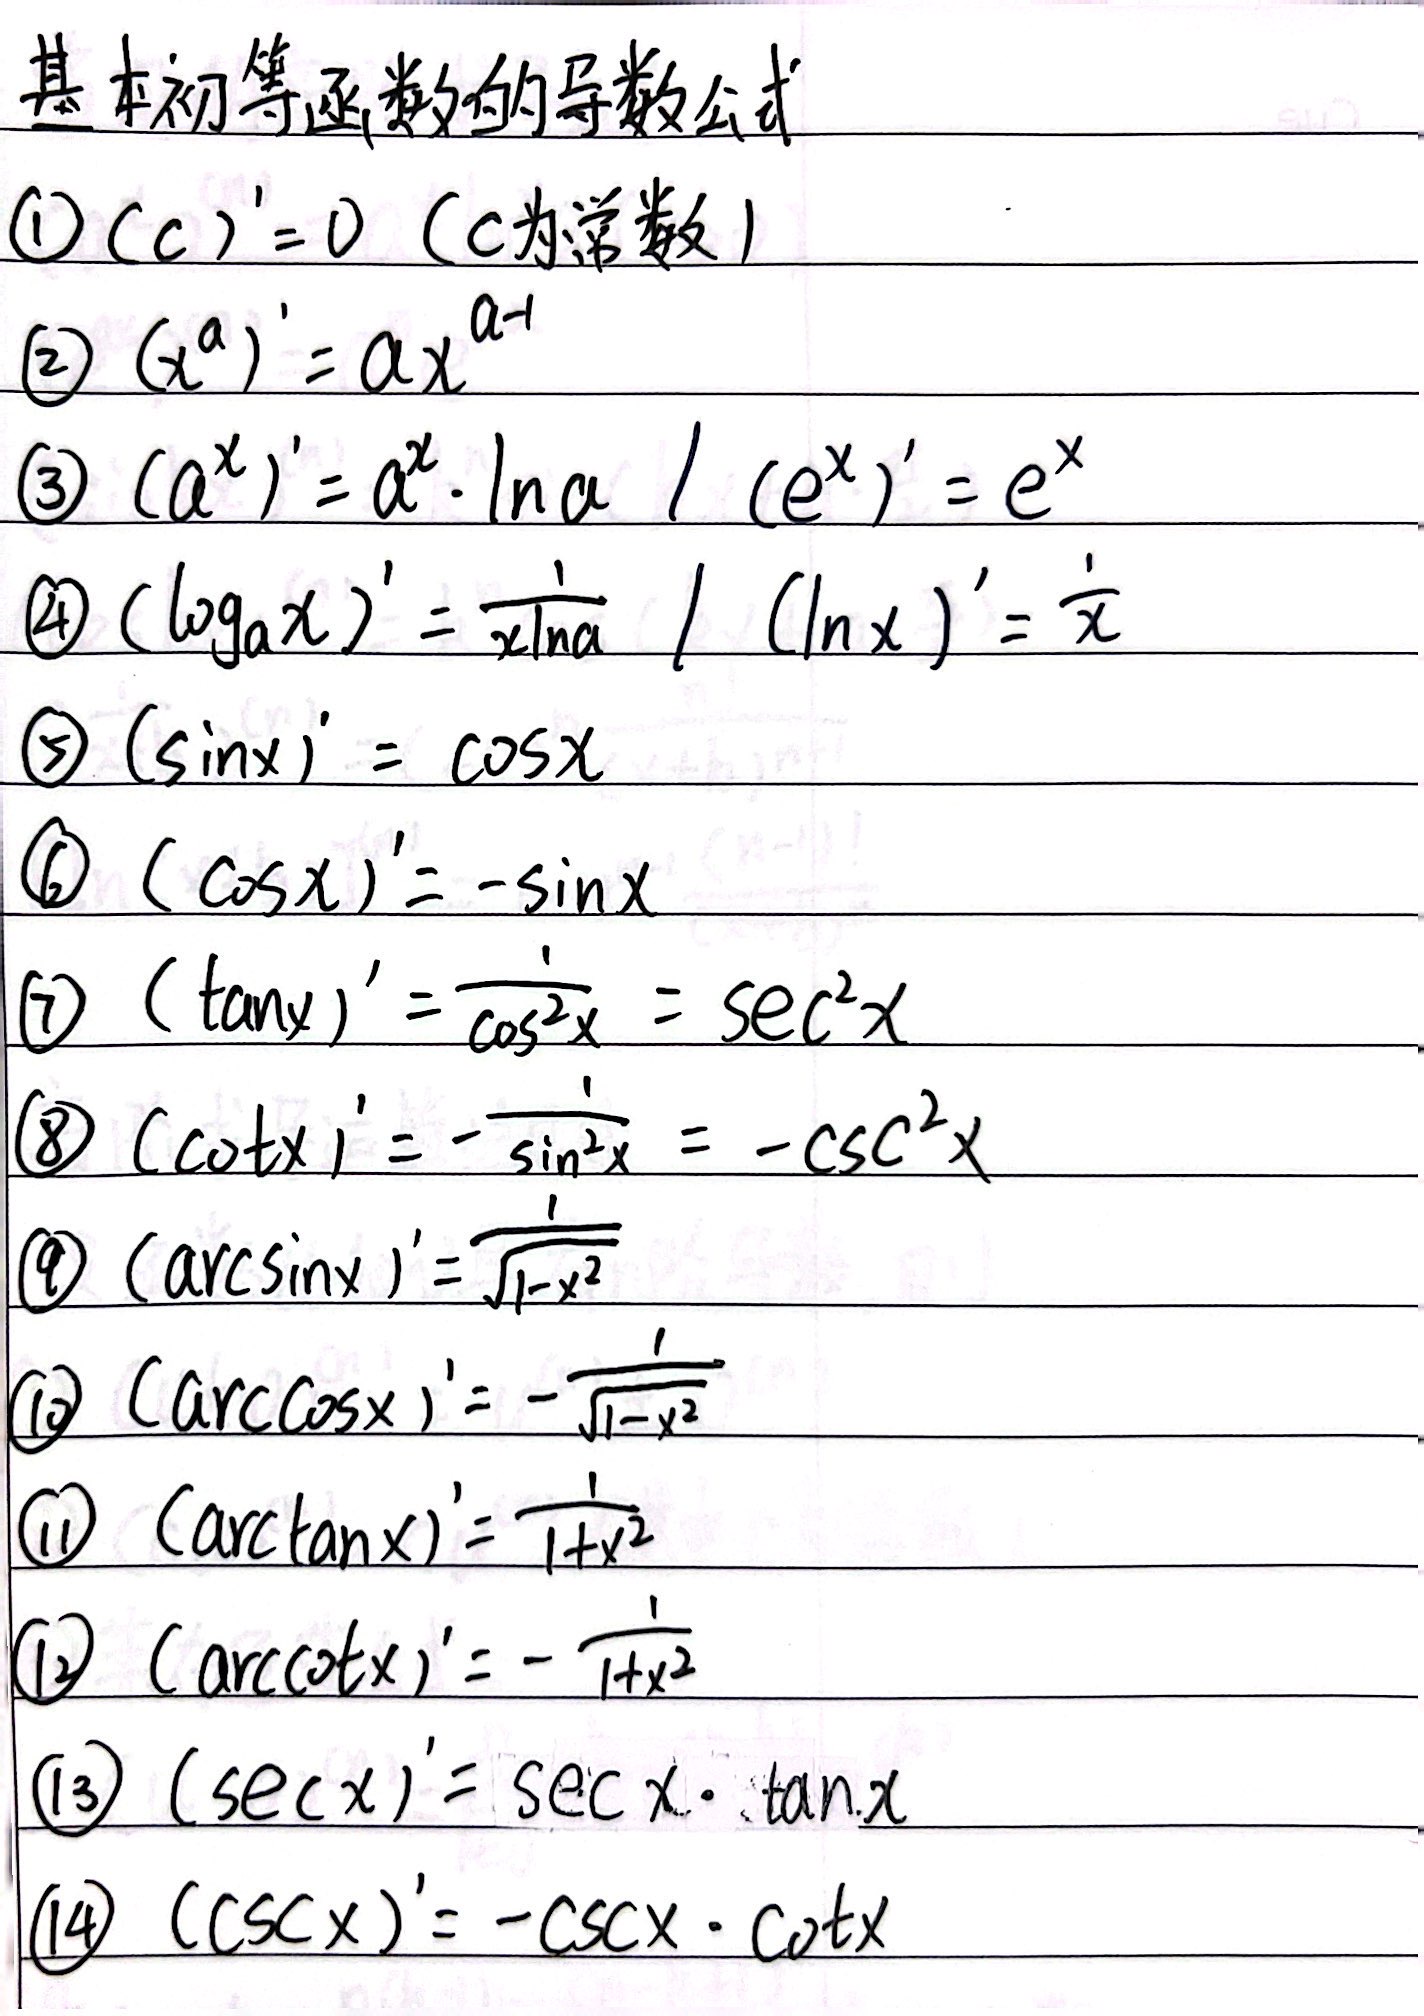 基本初等函数的导数公式
① (c)' = 0 (c为常数)
② (x^a)' = ax^(a-1)
③ (a^x)' = a^x · ln a / (e^x)' = e^x
④ (log_a x)' = 1/(x ln a) / (ln x)' = 1/x
⑤ (sinx)' = cosx
⑥ (cosx)' = -sinx
⑦ (tanx)' = 1/(cos²x) = sec²x
⑧ (cotx)' = -1/(sin²x) = -csc²x
⑨ (arcsinx)' = 1/√(1-x²)
⑩ (arccosx)' = -1/√(1-x²)
⑪ (arctanx)' = 1/(1+x²)
⑫ (arccotx)' = -1/(1+x²)
⑬ (secx)' = secx · tanx
⑭ (cscx)' = -cscx · cotx